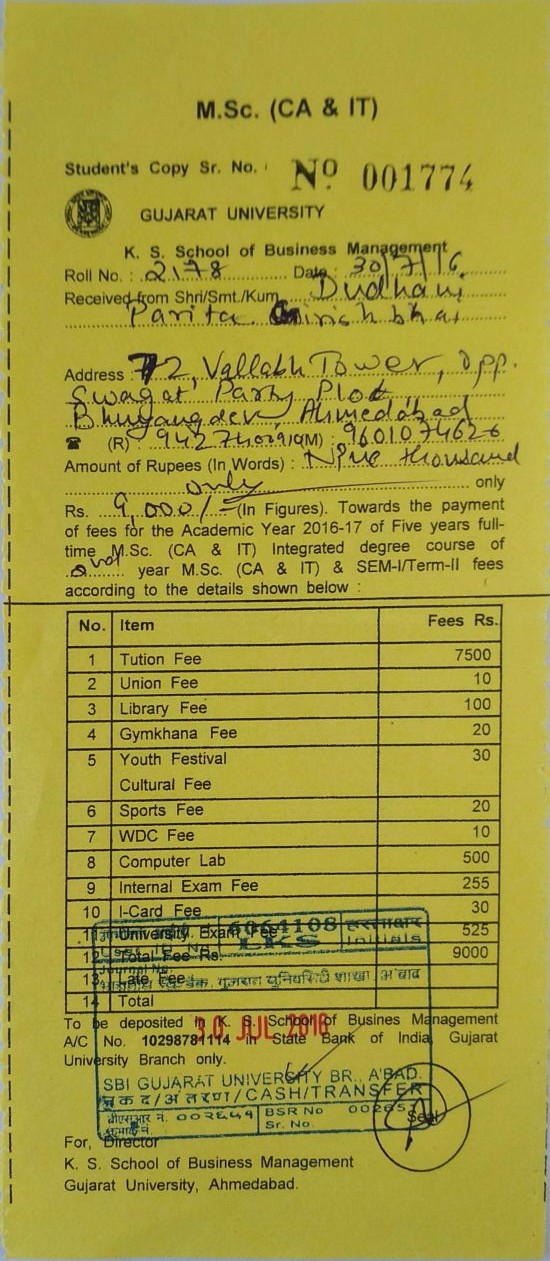 M.Sc. (CA & IT)
Student's Copy Sr. No. : Nº 001774
GUJARAT UNIVERSITY
K. S. School of Business Management
Roll No. : 2178 Date : 30/7/16
Received from Shri/Smt./Kum. Dudhani
Parita
Address : 72, Vallabh Tower, Opp.
Swagat Party Plot
Bhuyangdev, Ahmedabad
☎ (R) : (M) : 9601074626
Amount of Rupees (In Words) : Nine thousand
only only
Rs. 9,000/- (In Figures). Towards the payment
of fees for the Academic Year 2016-17 of Five years full-
time M.Sc. (CA & IT) Integrated degree course of
year M.Sc. (CA & IT) & SEM-I/Term-II fees
according to the details shown below :
No. Item Fees Rs.
1 Tution Fee 7500
2 Union Fee 10
3 Library Fee 100
4 Gymkhana Fee 20
5 Youth Festival 30
Cultural Fee
6 Sports Fee 20
7 WDC Fee 10
8 Computer Lab 500
9 Internal Exam Fee 255
10 I-Card Fee 30
11 University Exam Fee 525
6064108 हस्ताक्षर
LKS Initials
12 Total Fee Rs. 9000
Journal No.
13 Late Fee
भारतीय स्टेट बैंक, गुजरात युनिवर्सिटी शाखा, अ'बाद
14 Total
To be deposited in K. S. School of Busines Management
30 JUL 2016
A/C No. 10298781114 in State Bank of India, Gujarat
University Branch only.
SBI GUJARAT UNIVERSITY BR., A'BAD.
नकद/अंतरण/CASH/TRANSFER
बीएसआर नं. ००२६५१ BSR No 002651
Sr. No.
Seal
For, Director
K. S. School of Business Management
Gujarat University, Ahmedabad.